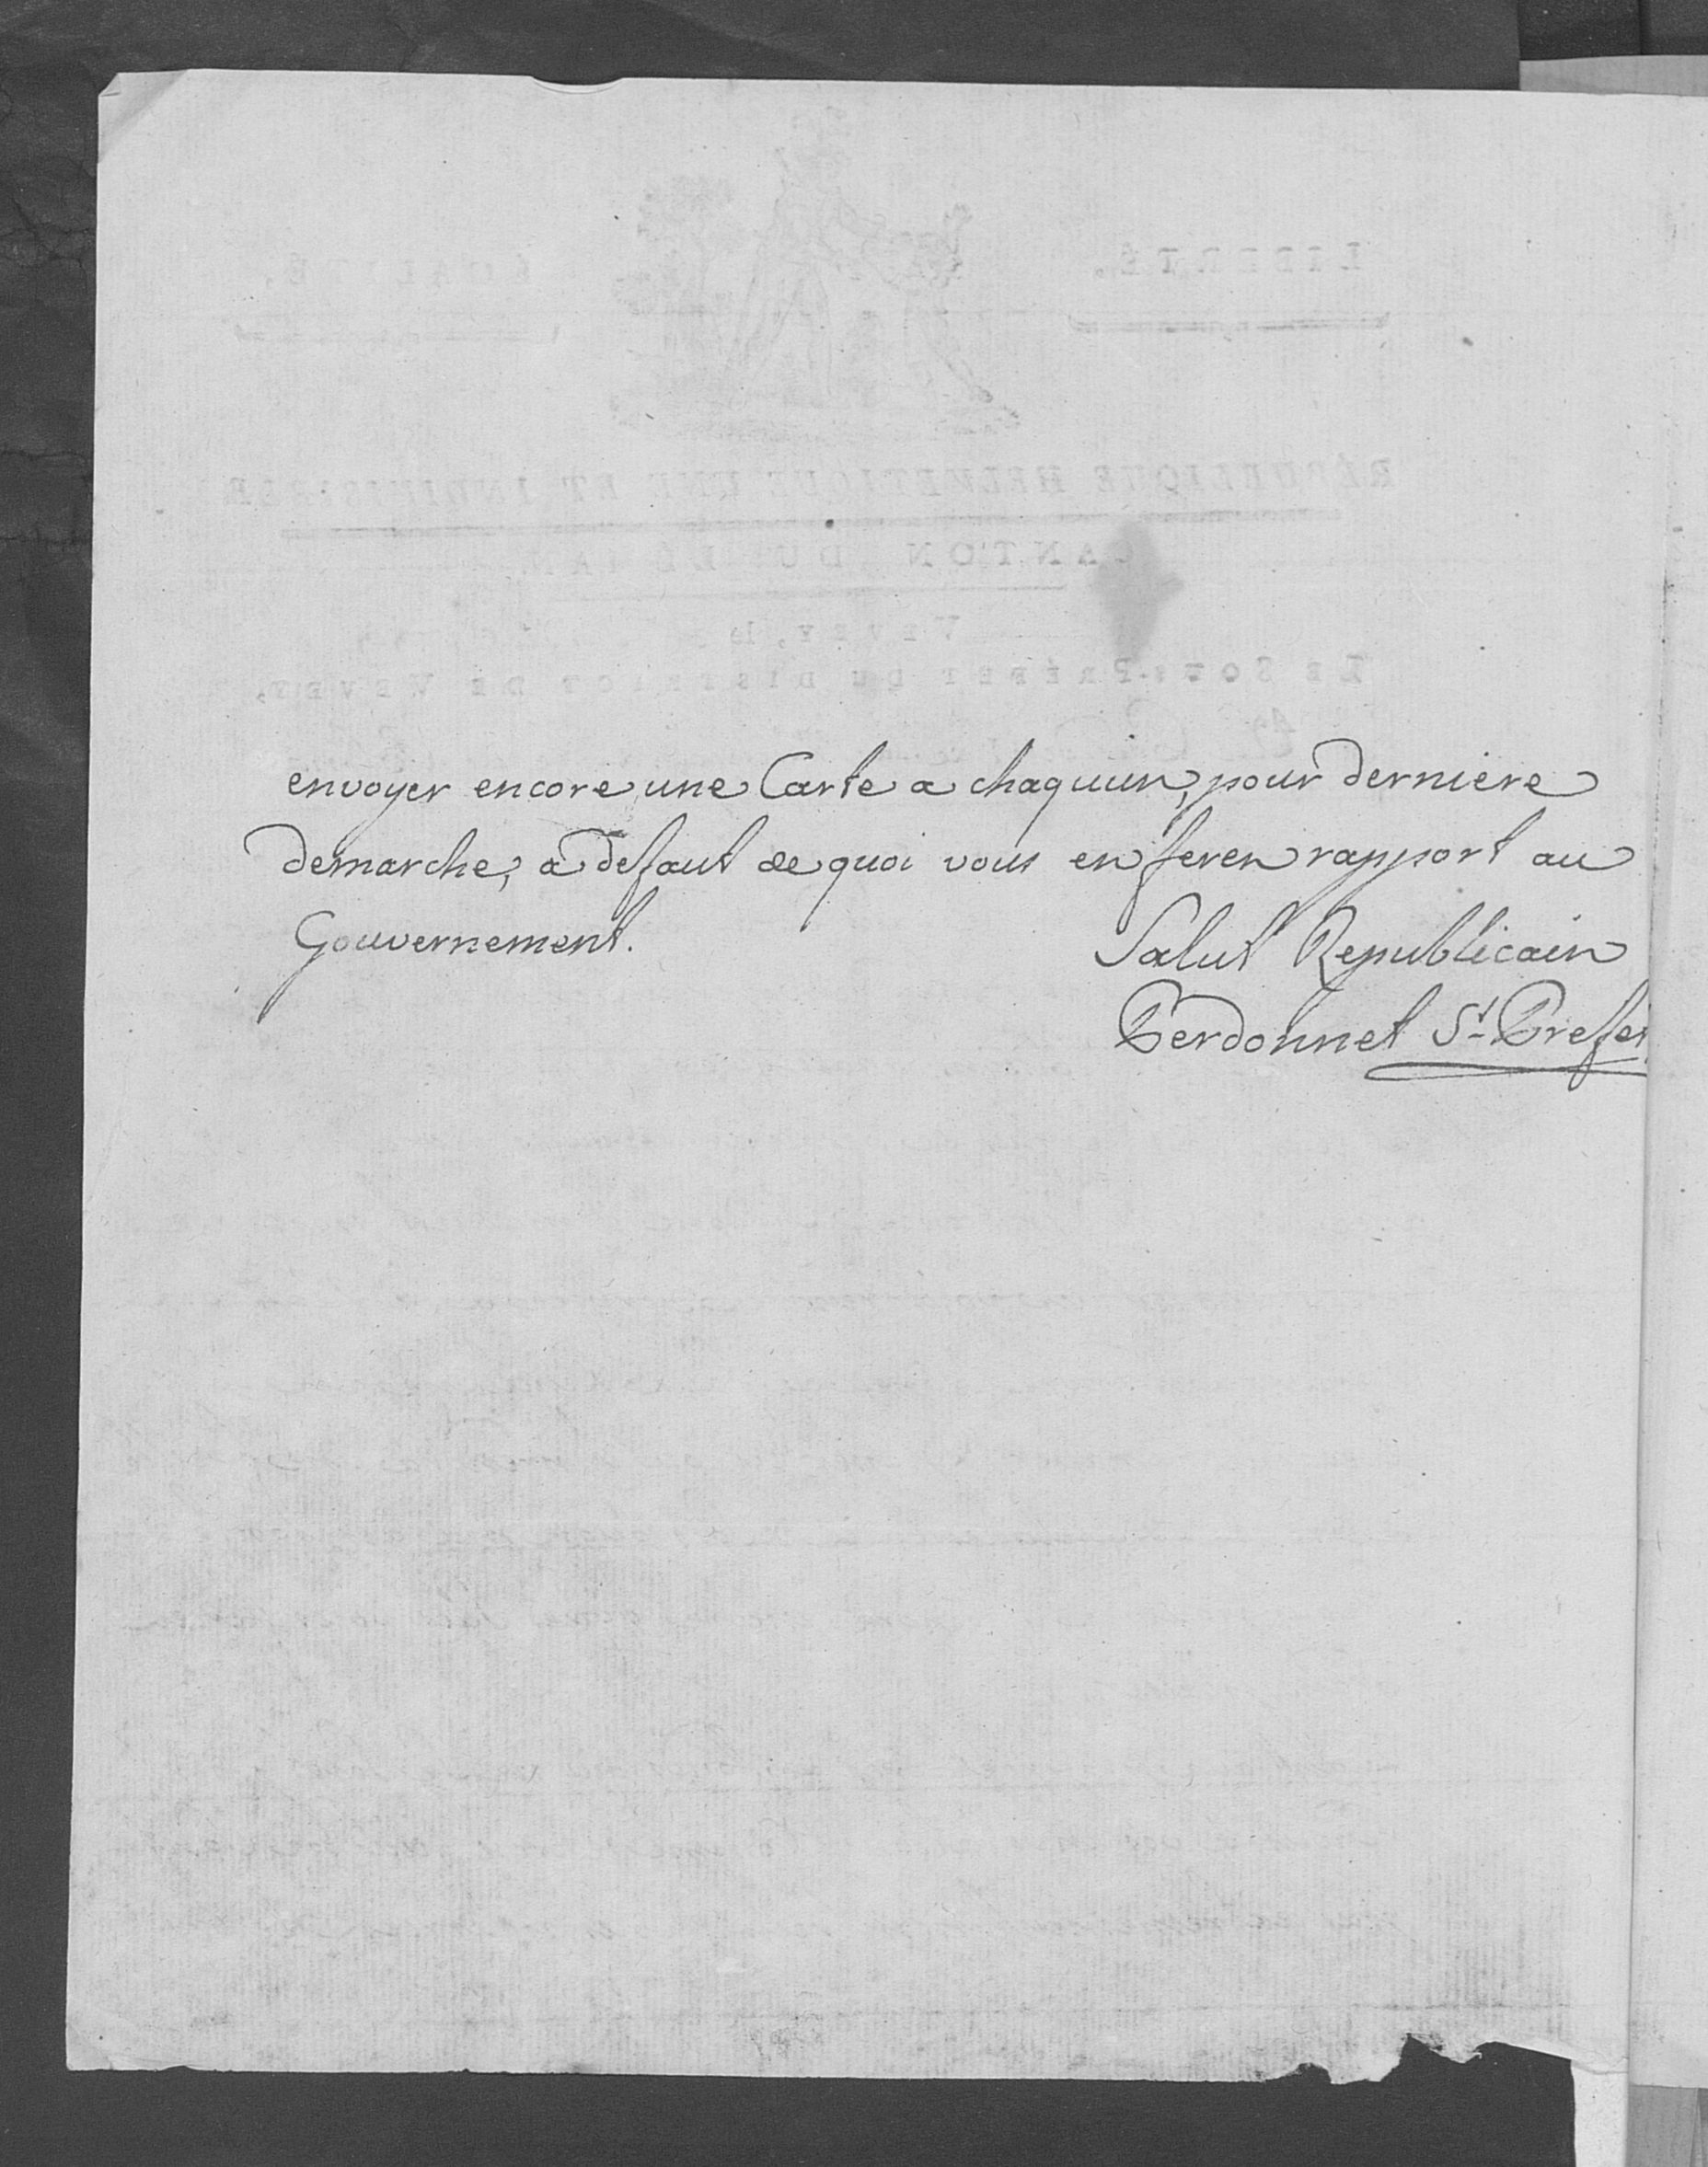 envoyer encore une Carte a chaquun, pour derniere
demarche, a deffaut de quoi vous en feren rapport au
Gouvernement.
Salut Republicain
Perdonnet St Prefet